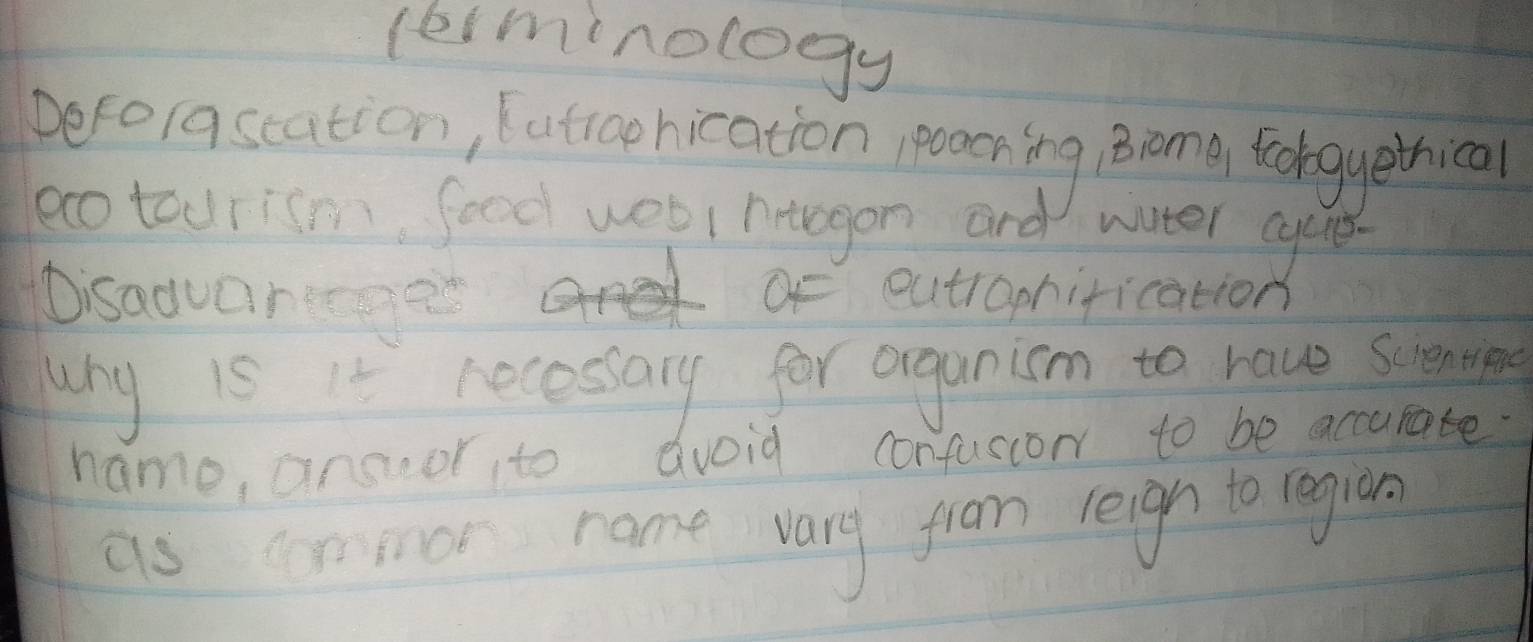 Terminology
Deforastation, Eutraphication, poaching, Biome, Ecologyethical
eco tourism, food web, nitrogon and water cycle-
Disadvantages and of eutraphitication
why is it necessary for organism to have Scientific
name, answer, to avoid confusion to be accurate.
as common name vary from reigh to region